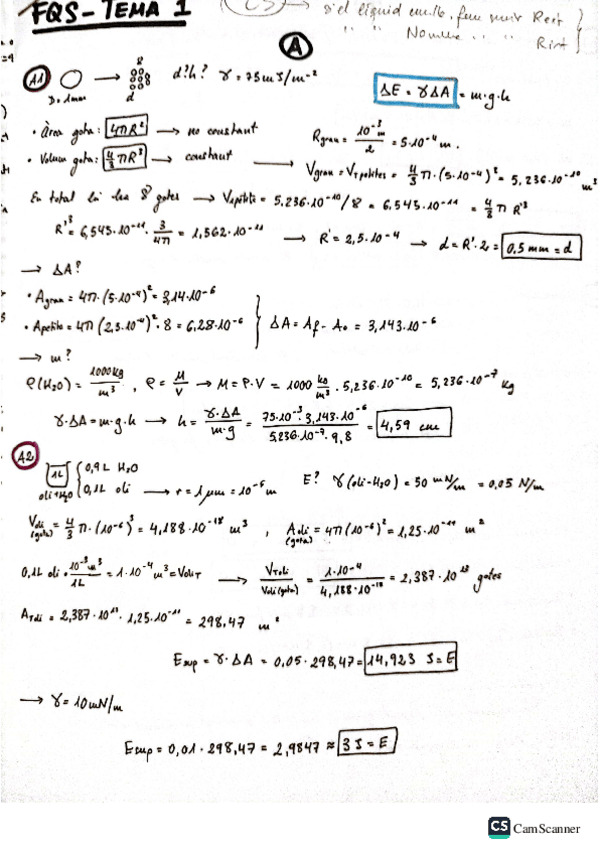 FQS - TEMA 1
si el líquid
A
A1
D=1mm
d
d? h? γ = 75 mJ/m⁻²
ΔE = γΔA = m·g·h
• Àrea gota: 4πR² → no constant
R gran = 10⁻³ m / 2 = 5·10⁻⁴ m.
• Volum gota: 4/3 πR³ → constant → V gran = V T petites = 4/3 π·(5·10⁻⁴)³ = 5,236·10⁻¹⁰ m³
En total hi ha 8 gotes → V petita = 5,236·10⁻¹⁰/8 = 6,545·10⁻¹¹ = 4/3 π R'³
R'³ = 6,545·10⁻¹¹ · 3/4π = 1,562·10⁻¹¹ → R' = 2,5·10⁻⁴ → d = R'·2 = 0,5 mm = d
→ ΔA?
• A gran = 4π·(5·10⁻⁴)² = 3,14·10⁻⁶
• A petita = 4π(2,5·10⁻⁴)²·8 = 6,28·10⁻⁶
ΔA = Af - Ao = 3,143·10⁻⁶
→ m?
ρ(H₂O) = 1000 kg/m³ , ρ = M/V → M = ρ·V = 1000 kg/m³ · 5,236·10⁻¹⁰ = 5,236·10⁻⁷ kg
γ·ΔA = m·g·h → h = γ·ΔA / m·g = 75·10⁻³·3,143·10⁻⁶ / 5,236·10⁻⁷·9,8 = 4,59 cm
A2
1L
oli+H₂O
0,9 L H₂O
0,1 L oli → r = 1 μm = 10⁻⁶ m
E? γ(oli-H₂O) = 50 mN/m = 0,05 N/m
V oli (gota) = 4/3 π·(10⁻⁶)³ = 4,188·10⁻¹⁸ m³ , A oli (gota) = 4π(10⁻⁶)² = 1,25·10⁻¹¹ m²
0,1L oli · 10⁻³ m³/1L = 1·10⁻⁴ m³ = V oli T → V T oli / V oli (gota) = 1·10⁻⁴ / 4,188·10⁻¹⁸ = 2,387·10¹³ gotes
A T oli = 2,387·10¹³ · 1,25·10⁻¹¹ = 298,47 m²
E sup = γ·ΔA = 0,05·298,47 = 14,923 J = E
→ γ = 10 mN/m
E sup = 0,01·298,47 = 2,9847 ≈ 3 J = E
CS CamScanner